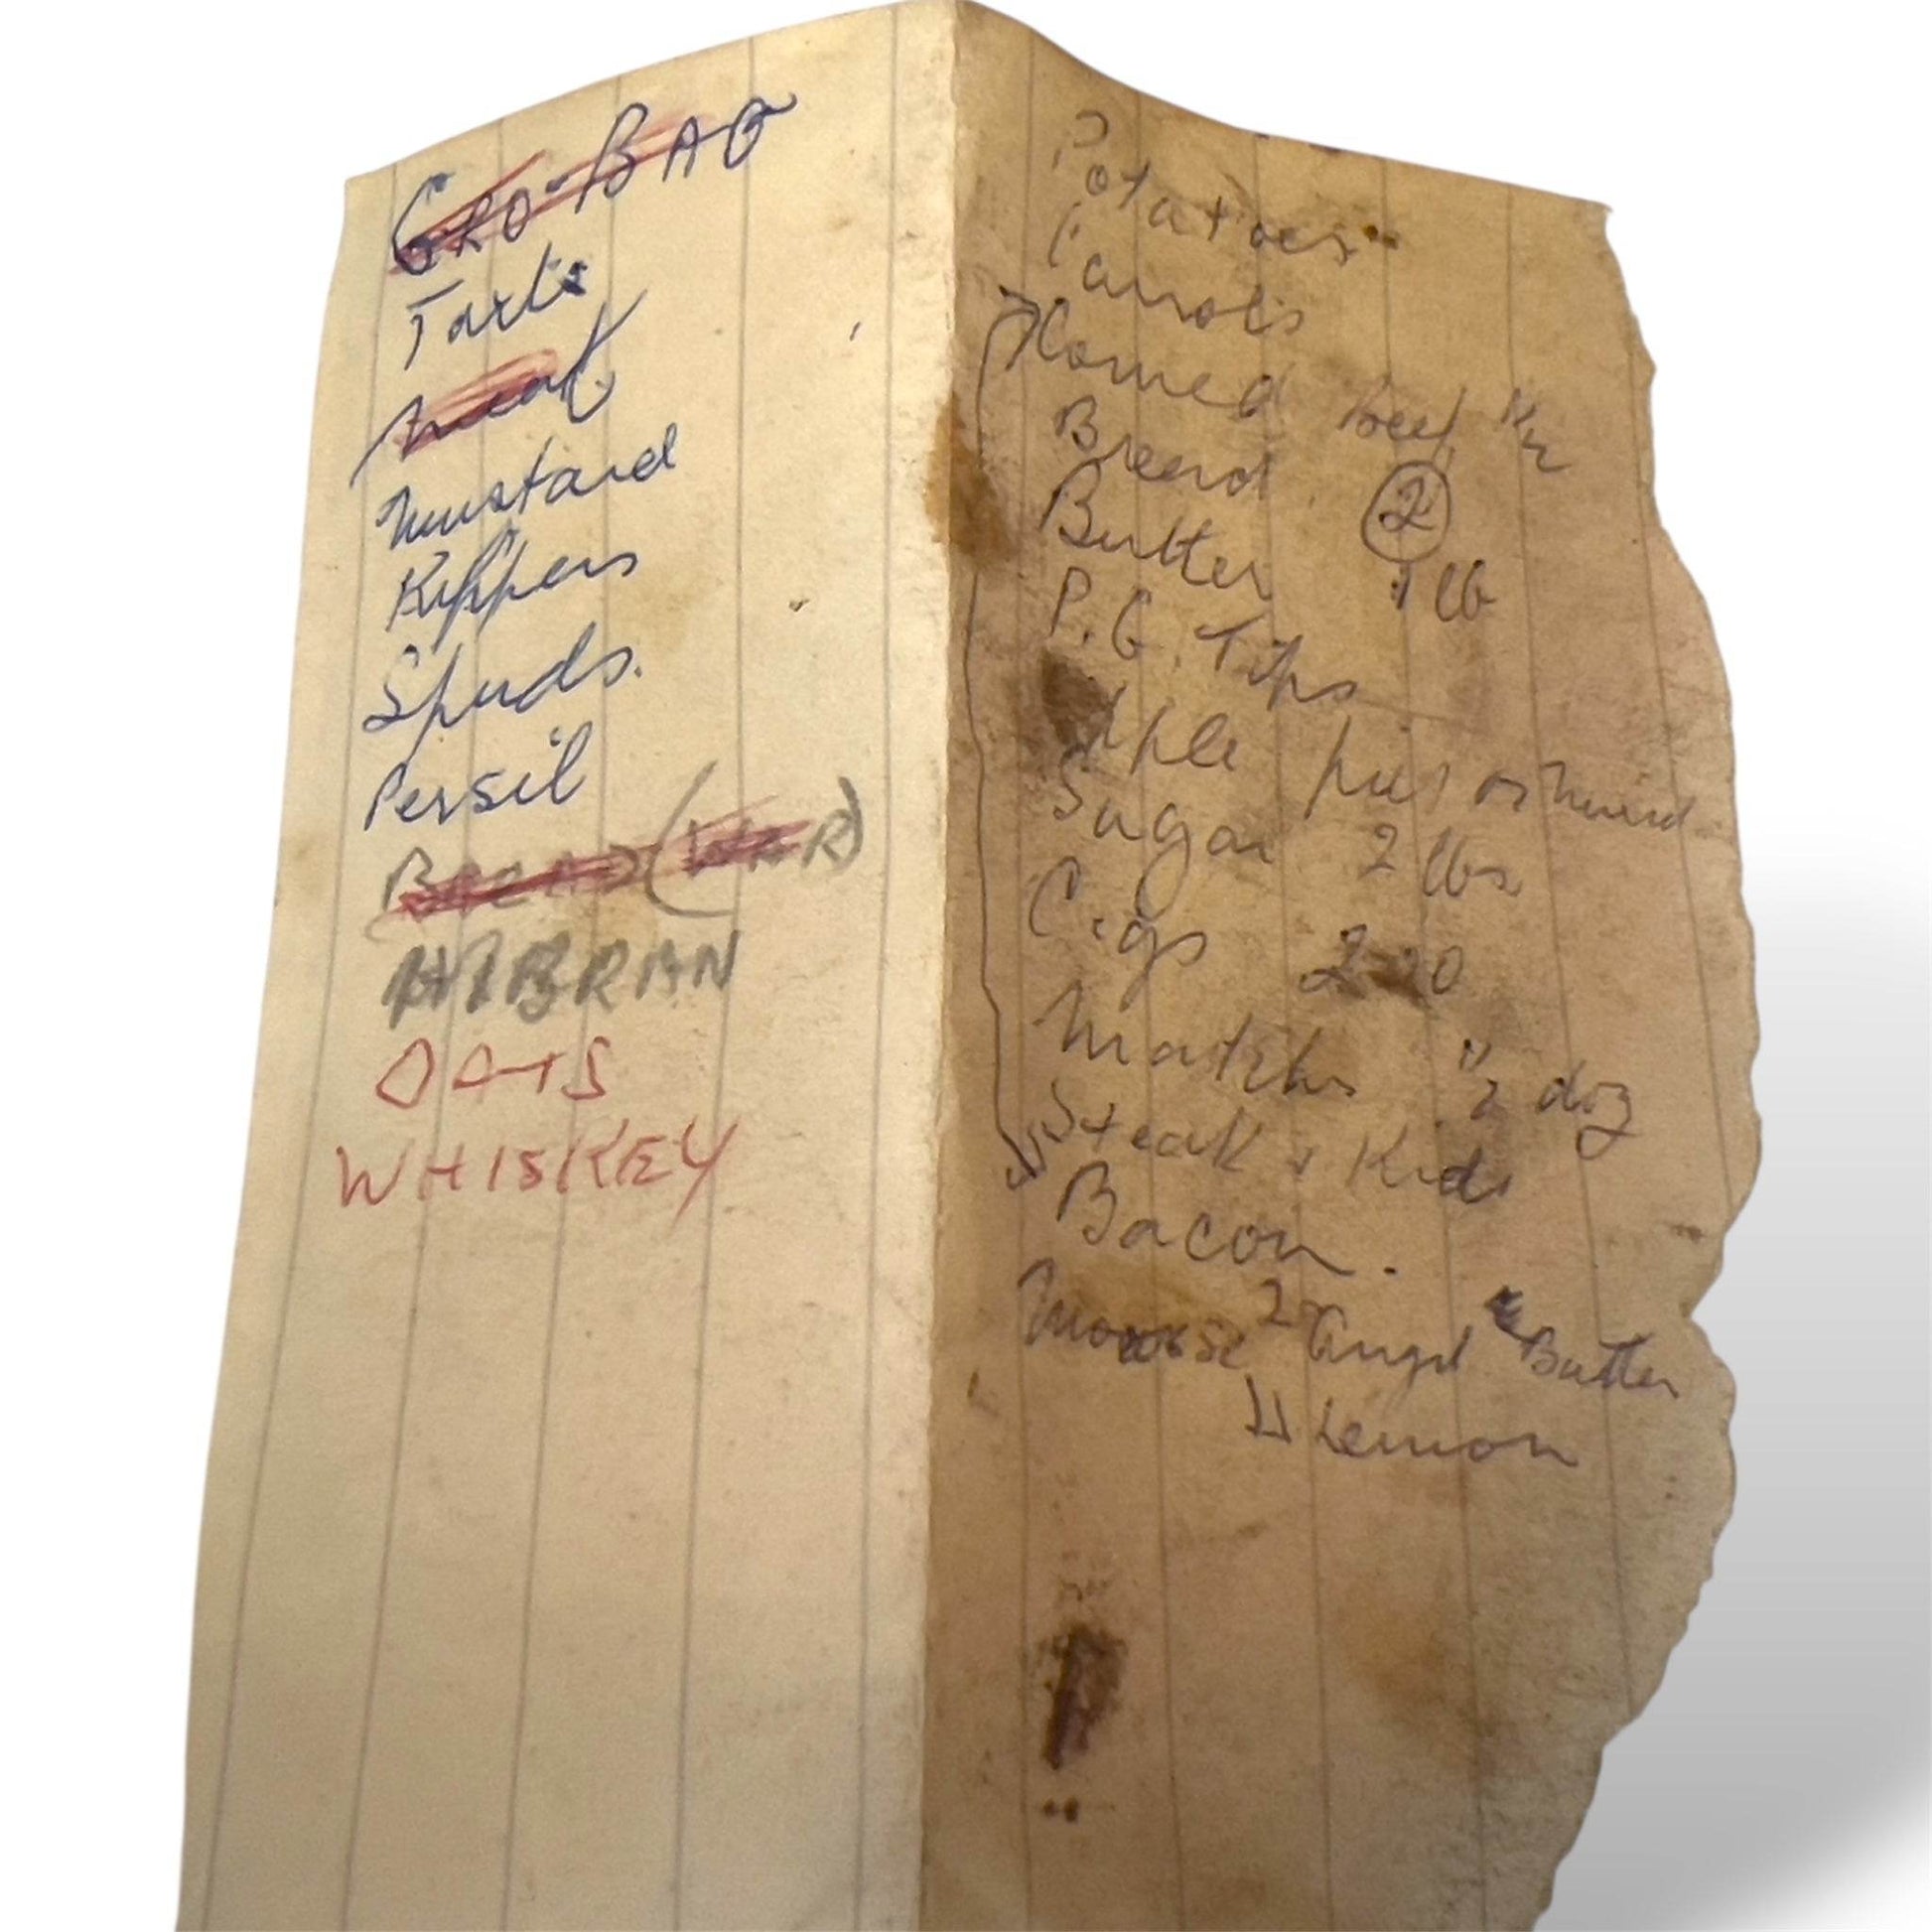 GRO-BAG
Tarts
Meat
Mustard
Kippers
Spuds.
Persil
BREAD (WAR)
HIBRAN
OATS
WHISKEY
Potatoes
Carrots
Corned beef 1/2
Bread 2
Butter 1 lb
P.G. Tips
Aple pies or
Sugar 2 lbs
Cigs 220
Matches 1/2 doz
Steak & Kid
Bacon.
Mousse 2 Angel Butter
Lemon